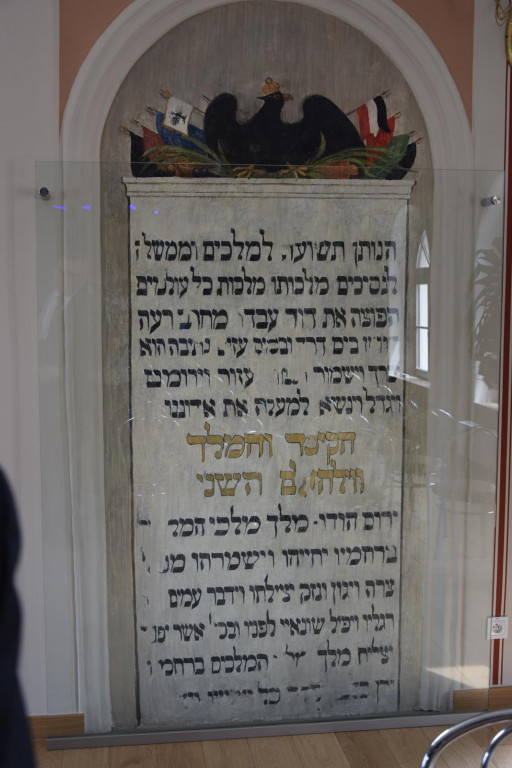 הנותן תשועה למלכים וממשלה
לנסיכים מלכותו מלכות כל עולמים
הפוצה את דוד עבדו מחרב רעה
בים דרך ובמים נתיבה הוא
וישמור עזור וירומם
ויגדל וינשא למעלה את אדוננו
הקיסר והמלך
ווילהעלם השני
ירום הודו מלך מלכי המל
ברחמיו יחייהו וישמרהו
צרה ויגון ונזק יצילהו וידבר עמים
רגליו ויפיל שונאיו לפניו ובכל אשר יפנ
יצליח מלך המלכים ברחמ
כל